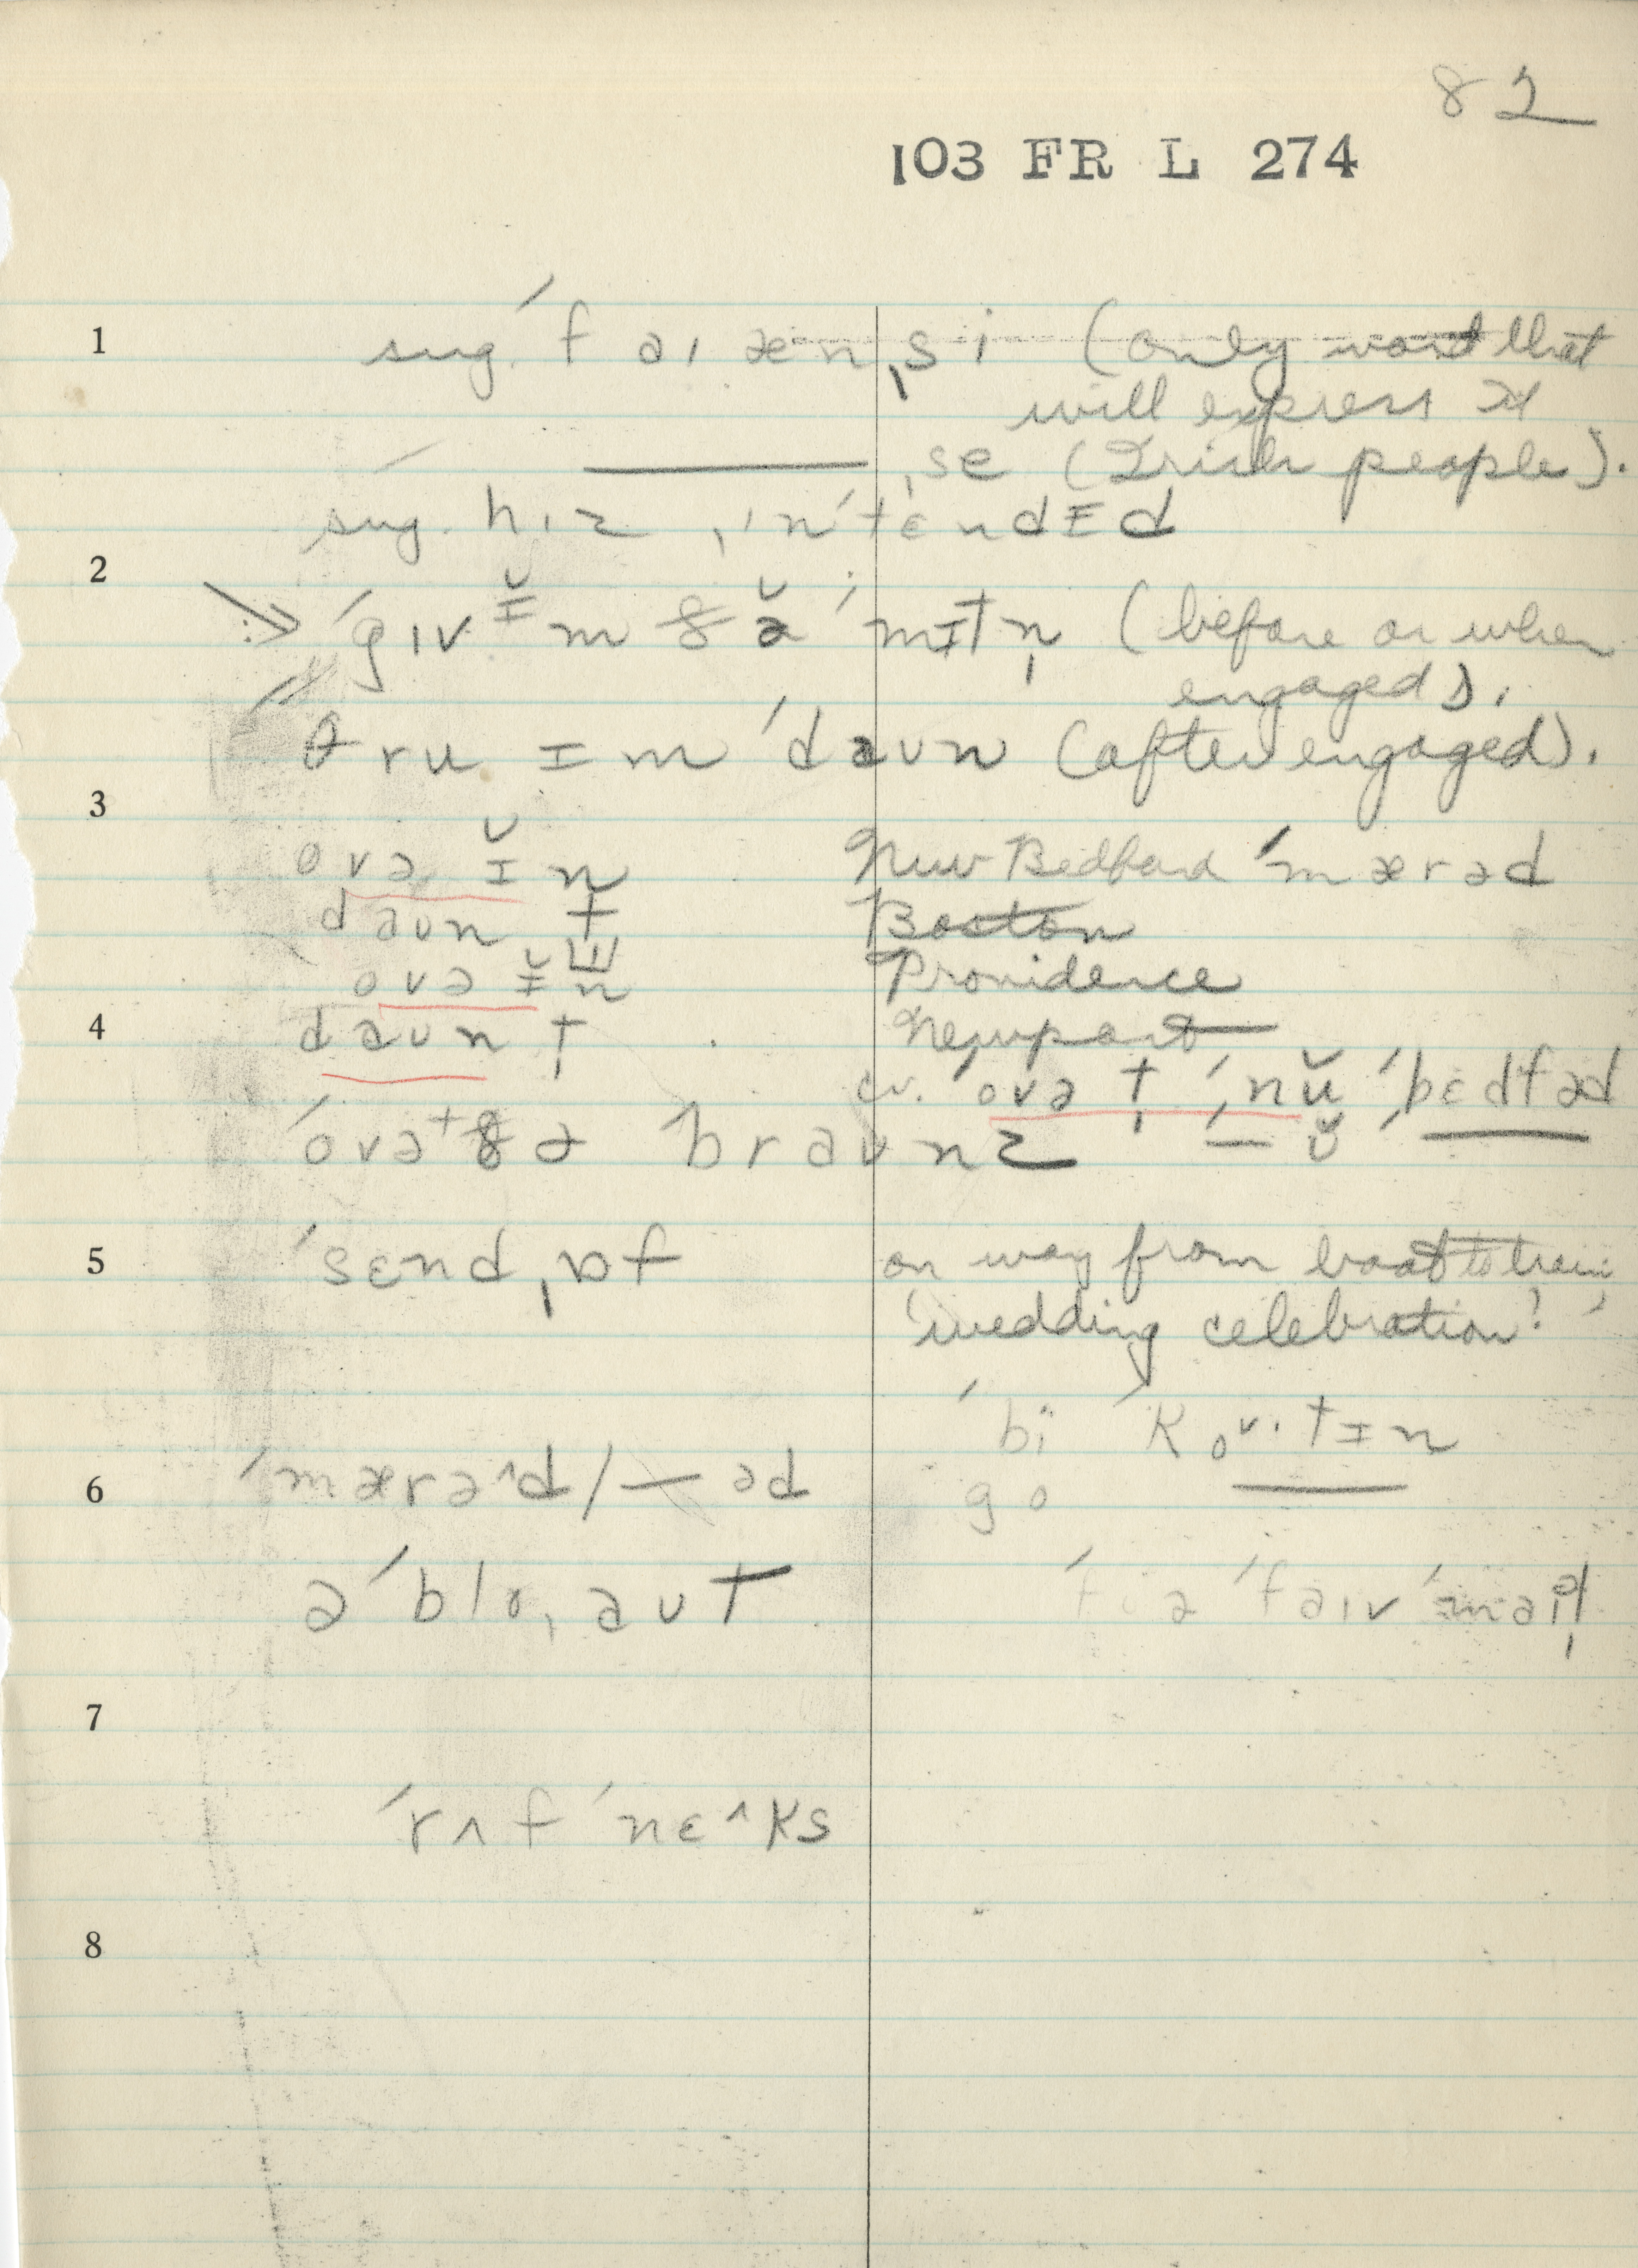 82
103 FR L 274
1 sug. ˈfaɪænˌsi (only word that
will express it
———ˌse (Irish people).
sug. hɪz ˌɪnˈtɛndɪd
2 ˈgɪv ɪ̆m ðə̆ ˈmɪtn̩ (before or when
engaged).
θru ɪm ˈdaʊn (after engaged).
3
ovə ɪ̆n New Bedford ˈmærəd
daʊn t Boston
ovə ɪ̆n Providence
4 daʊn t Newport
cv. ˈovə t ˌnŭ ˈbɛdfəd
ˈovə t ðə braʊnz — ŭ ——
5 ˈsɛndˌɒf on way from boat to train
'wedding celebration!'
ˈbi ˈkovˑtɪn
6 ˈmærə^d/—əd go ——
əˈbloˌaʊt ə ˈfaɪv ˈmaɪl
7
ˈrʌf ˈnɛ^ks
8